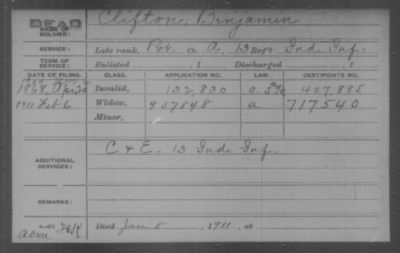 DEAD Clifton, Benjamin
NAME OF SOLDIER:
SERVICE: Late rank, Pvt. Co. A, 13 Regt. Ind. Inf.
TERM OF SERVICE: Enlisted , 1 Discharged , 1
DATE OF FILING. CLASS. APPLICATION NO. LAW. CERTIFICATE NO.
1868, Apr Invalid, 132,830 407,885
1911 Feb 6 Widow, 957848 a 717540
Minor,
ADDITIONAL SERVICES: C & E. 13 Ind. Inf.
REMARKS:
Died Jan 5, 1911, at